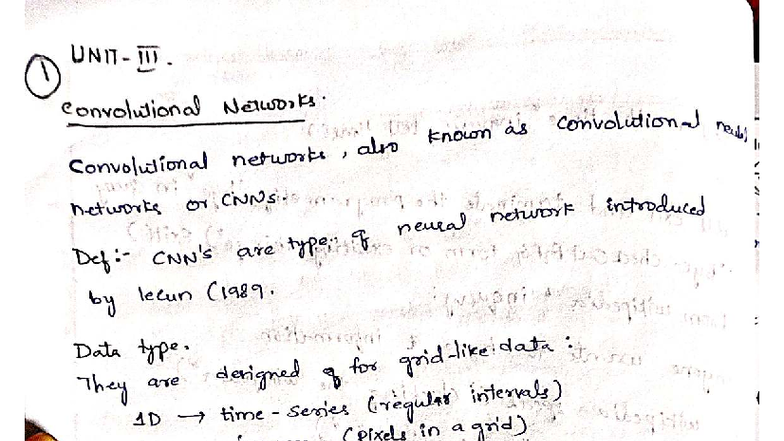 1
UNIT-III.
Convolutional Networks.
Convolutional networks, also known as Convolutional
networks or CNNs.
Def:- CNN's are type of neural network introduced
by lecun (1989.
Data type.
They are designed for grid-like data:
1D → time-series (regular intervals)
(pixels in a grid)